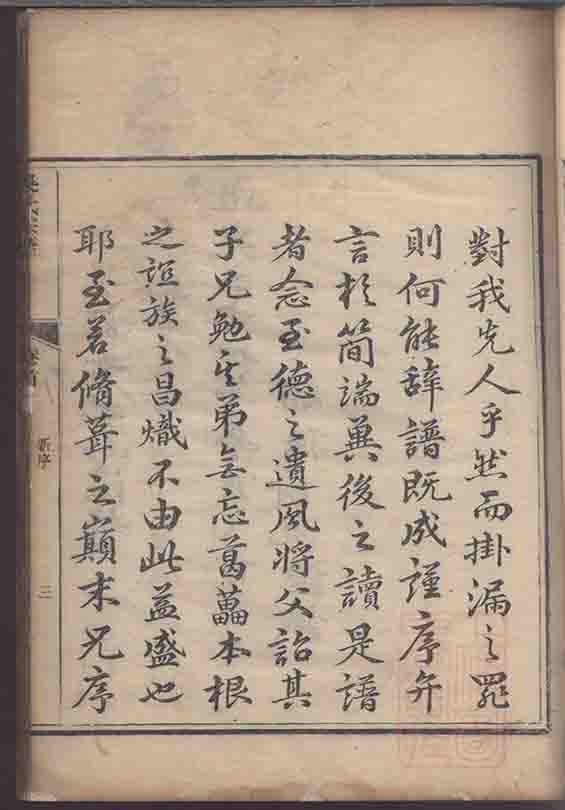 對我先人乎然而掛漏之罪
則何能辭譜既成謹序弁
言於簡端冀後之讀是譜
者念至德之遺風將父詔其
子兄勉其弟無忘葛藟本根
之誼族之昌熾不由此益盛也
耶至若脩葺之巔末兄序
新序
三